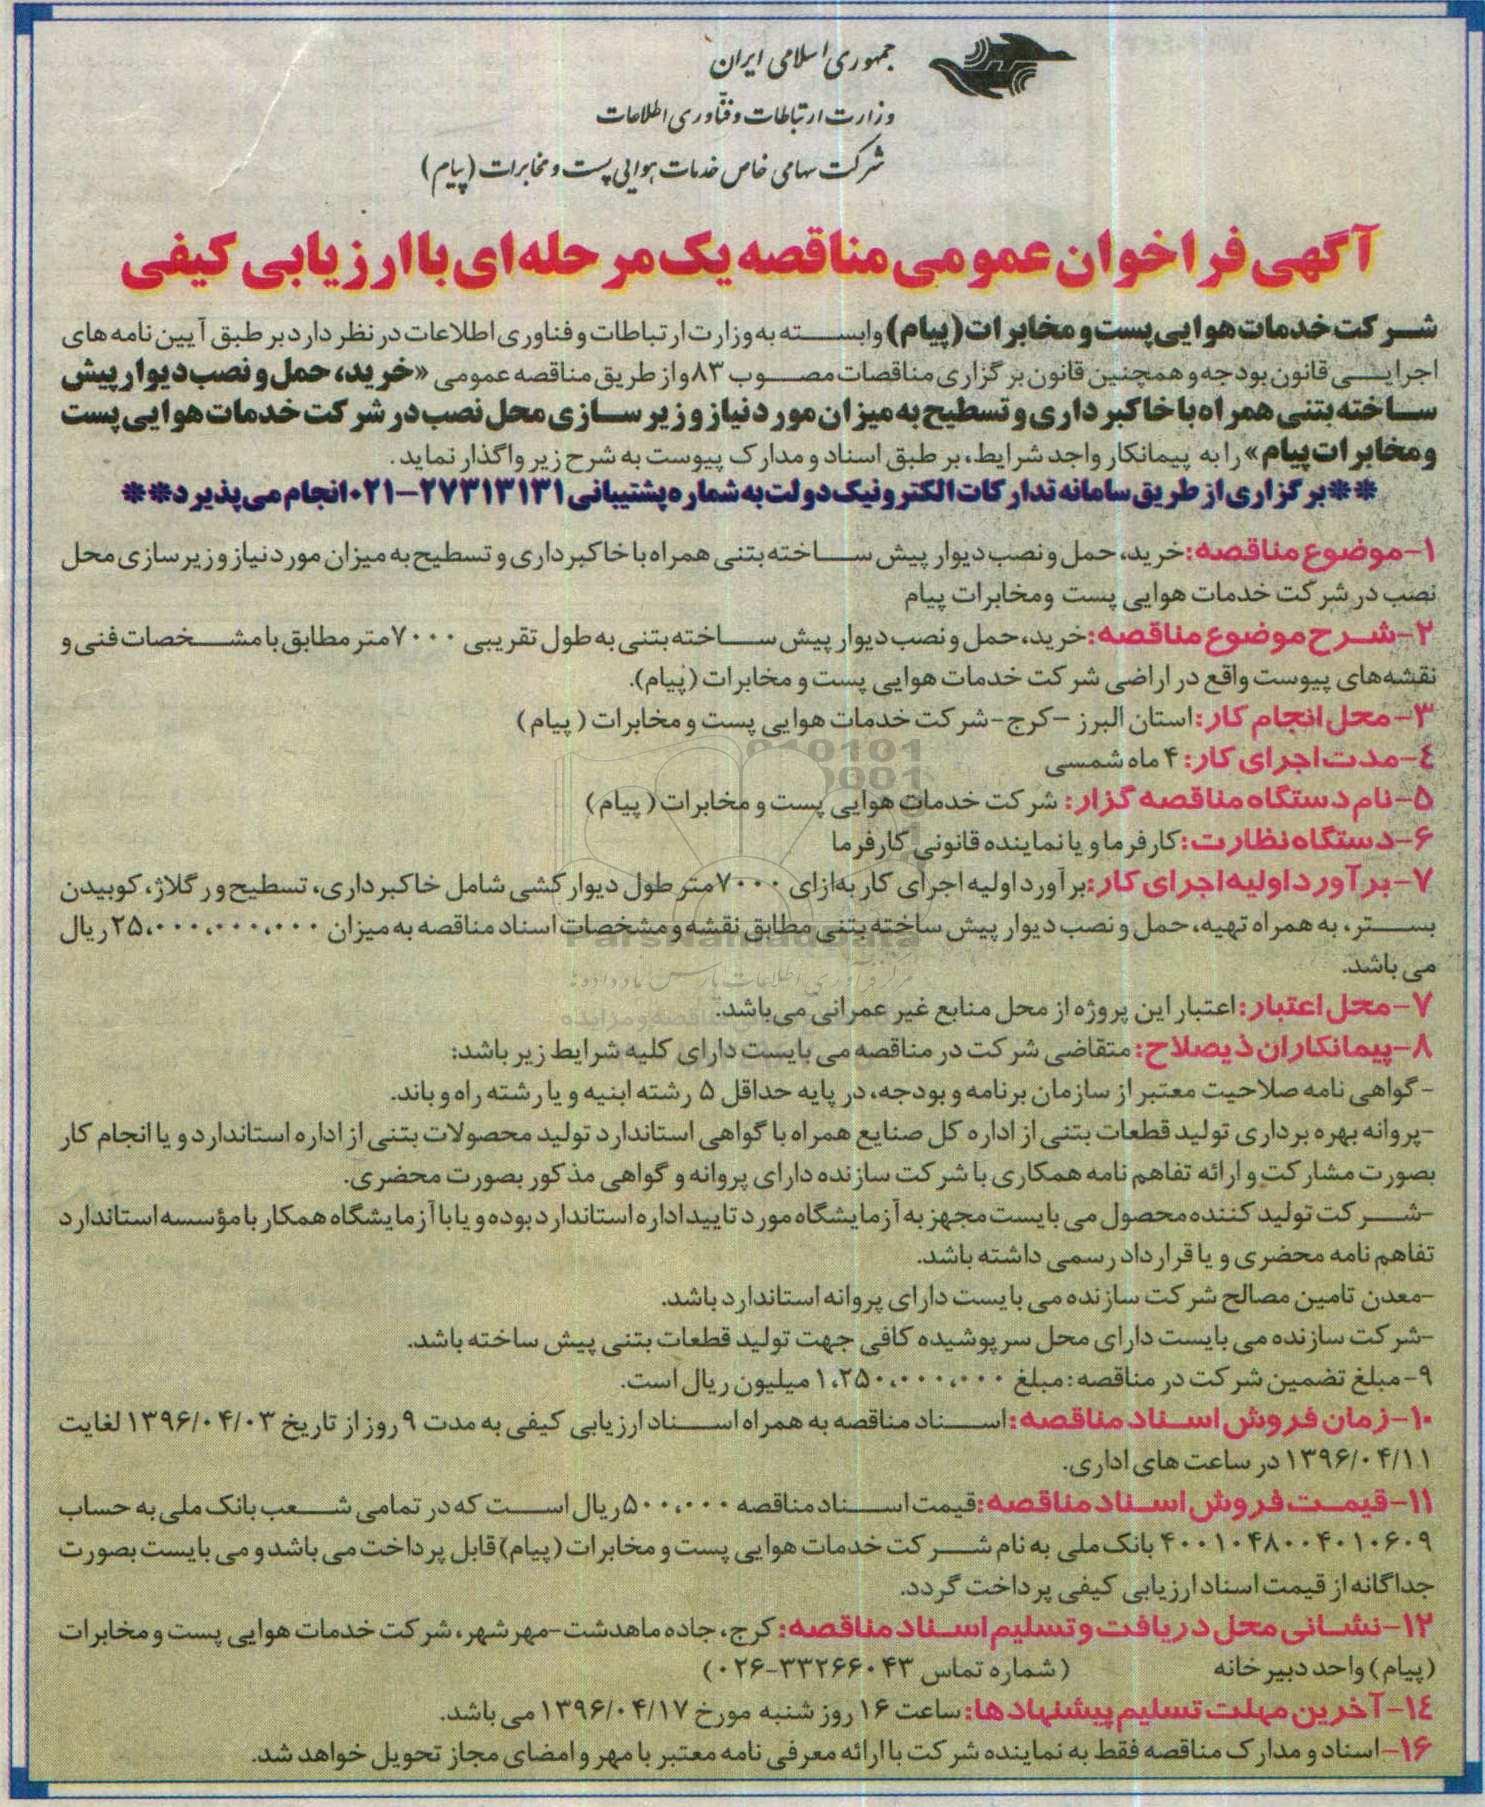 جمهوری اسلامی ایران
وزارت ارتباطات و فنّاوری اطلاعات
شرکت سهامی خاص خدمات هوایی پست و مخابرات (پیام)
آگهی فراخوان عمومی مناقصه یک مرحله‌ای با ارزیابی کیفی
شرکت خدمات هوایی پست و مخابرات (پیام) وابسته به وزارت ارتباطات و فناوری اطلاعات در نظر دارد بر طبق آیین نامه های
اجرایی قانون بودجه و همچنین قانون برگزاری مناقصات مصوب ۸۳ و از طریق مناقصه عمومی «خرید، حمل و نصب دیوار پیش
ساخته بتنی همراه با خاکبرداری و تسطیح به میزان مورد نیاز و زیر سازی محل نصب در شرکت خدمات هوایی پست
و مخابرات پیام» را به پیمانکار واجد شرایط، بر طبق اسناد و مدارک پیوست به شرح زیر واگذار نماید.
**برگزاری از طریق سامانه تدارکات الکترونیک دولت به شماره پشتیبانی ۲۷۳۱۳۱۳۱-۰۲۱ انجام می پذیرد**
۱-موضوع مناقصه: خرید، حمل و نصب دیوار پیش ساخته بتنی همراه با خاکبرداری و تسطیح به میزان مورد نیاز و زیر سازی محل
نصب در شرکت خدمات هوایی پست ومخابرات پیام
۲-شرح موضوع مناقصه: خرید، حمل و نصب دیوار پیش ساخته بتنی به طول تقریبی ۷۰۰۰ متر مطابق با مشخصات فنی و
نقشه‌های پیوست واقع در اراضی شرکت خدمات هوایی پست و مخابرات (پیام).
۳-محل انجام کار: استان البرز -کرج-شرکت خدمات هوایی پست و مخابرات ( پیام )
۴-مدت اجرای کار: ۴ ماه شمسی
۵-نام دستگاه مناقصه گزار: شرکت خدمات هوایی پست و مخابرات ( پیام )
۶-دستگاه نظارت: کارفرما و یا نماینده قانونی کارفرما
۷-برآورد اولیه اجرای کار: برآورد اولیه اجرای کار به‌ازای ۷۰۰۰ متر طول دیوار کشی شامل خاکبرداری، تسطیح و رگلاژ، کوبیدن
بستر، به همراه تهیه، حمل و نصب دیوار پیش ساخته بتنی مطابق نقشه و مشخصات اسناد مناقصه به میزان ۲۵،۰۰۰،۰۰۰،۰۰۰ ریال
می باشد.
۷-محل اعتبار: اعتبار این پروژه از محل منابع غیر عمرانی می‌باشد.
۸-پیمانکاران ذیصلاح: متقاضی شرکت در مناقصه می بایست دارای کلیه شرایط زیر باشد:
- گواهی نامه صلاحیت معتبر از سازمان برنامه و بودجه، در پایه حداقل ۵ رشته ابنیه و یا رشته راه و باند.
-پروانه بهره برداری تولید قطعات بتنی از اداره کل صنایع همراه با گواهی استاندارد تولید محصولات بتنی از اداره استاندارد و یا انجام کار
بصورت مشارکت و ارائه تفاهم نامه همکاری با شرکت سازنده دارای پروانه و گواهی مذکور بصورت محضری.
-شرکت تولید کننده محصول می بایست مجهز به آزمایشگاه مورد تایید اداره استاندارد بوده و یا با آزمایشگاه همکار با مؤسسه استاندارد
تفاهم نامه محضری و یا قرارداد رسمی داشته باشد.
-معدن تامین مصالح شرکت سازنده می بایست دارای پروانه استاندارد باشد.
-شرکت سازنده می بایست دارای محل سرپوشیده کافی جهت تولید قطعات بتنی پیش ساخته باشد.
۹-مبلغ تضمین شرکت در مناقصه: مبلغ ۱،۲۵۰،۰۰۰،۰۰۰ میلیون ریال است.
۱۰-زمان فروش اسناد مناقصه: اسناد مناقصه به همراه اسناد ارزیابی کیفی به مدت ۹ روز از تاریخ ۱۳۹۶/۰۴/۰۳ لغایت
۱۳۹۶/۰۴/۱۱ در ساعت های اداری.
۱۱-قیمت فروش اسناد مناقصه: قیمت اسناد مناقصه ۵۰۰،۰۰۰ ریال است که در تمامی شعب بانک ملی به حساب
۴۰۰۱۰۴۸۰۰۴۰۱۰۶۰۹ بانک ملی به نام شرکت خدمات هوایی پست و مخابرات (پیام) قابل پرداخت می باشد و می بایست بصورت
جداگانه از قیمت اسناد ارزیابی کیفی پرداخت گردد.
۱۲-نشانی محل دریافت و تسلیم اسناد مناقصه: کرج، جاده ماهدشت-مهرشهر، شرکت خدمات هوایی پست و مخابرات
(پیام) واحد دبیرخانه (شماره تماس ۳۳۲۶۶۰۴۳-۰۲۶)
۱۴-آخرین مهلت تسلیم پیشنهادها: ساعت ۱۶ روز شنبه مورخ ۱۳۹۶/۰۴/۱۷ می باشد.
۱۶-اسناد و مدارک مناقصه فقط به نماینده شرکت با ارائه معرفی نامه معتبر با مهر و امضای مجاز تحویل خواهد شد.